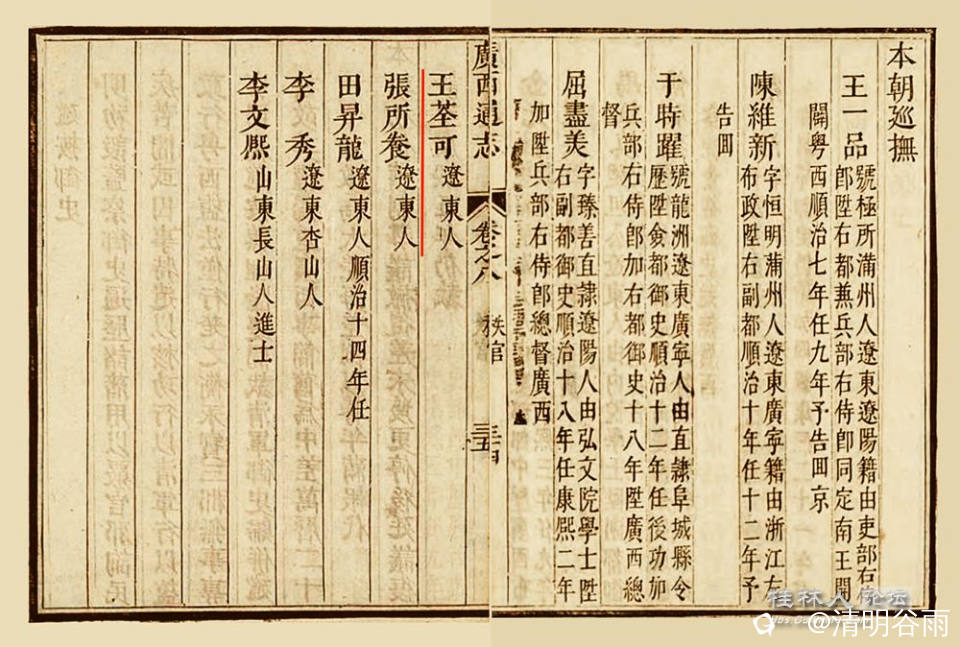 本朝廵撫
王一品
號極所滿州人遼東遼陽籍由吏部右
郎陞右都兼兵部右侍郎同定南王開
闢粤西順治七年任九年予告囬京
陳維新
字恒明蒲州人遼東廣寧籍由浙江左
布政陞右副都順治十年任十二年予
告囬
于時躍
號龍洲遼東廣寧人由直隸阜城縣令
歷陞僉都御史順治十二年任後功加
兵部右侍郎加右都御史十八年陞廣西總
督
屈盡美
字臻善直隸遼陽人由弘文院學士陞
右副都御史順治十八年任康熙二年
加陞兵部右侍郎總督廣西
廣西通志 卷之八 秩官
王荃可 遼東人
張所養 遼東人
田昇龍 遼東人順治十四年任
李秀 遼東杏山人
李文熙 山東長山人進士
桂林人论坛
@清明谷雨